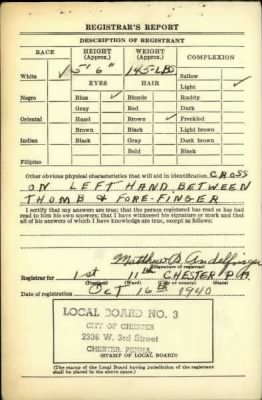 REGISTRAR'S REPORT
DESCRIPTION OF REGISTRANT
RACE HEIGHT (Approx.) WEIGHT (Approx.) COMPLEXION
5' 6" 145-LBS Sallow
White ✓ EYES HAIR Light ✓
Negro Blue ✓ Blonde Ruddy
Gray Red Dark
Oriental Hazel Brown ✓ Freckled
Brown Black Light brown
Indian Black Gray Dark brown
Bald Black
Filipino
Other obvious physical characteristics that will aid in identification CROSS
ON LEFT HAND BETWEEN
THOMB & FORE-FINGER
I certify that my answers are true; that the person registered has read or has had
read to him his own answers; that I have witnessed his signature or mark and that
all of his answers of which I have knowledge are true, except as follows:
Matthew B.
(Signature of registrar)
Registrar for 1st 11th CHESTER PA
(Precinct) (Ward) (City or county) (State)
Date of registration OCT 16th 1940
LOCAL BOARD NO. 3
CITY OF CHESTER
2336 W. 3rd Street
CHESTER, PENNA.
(STAMP OF LOCAL BOARD)
(The stamp of the Local Board having jurisdiction of the registrant
shall be placed in the above space.)